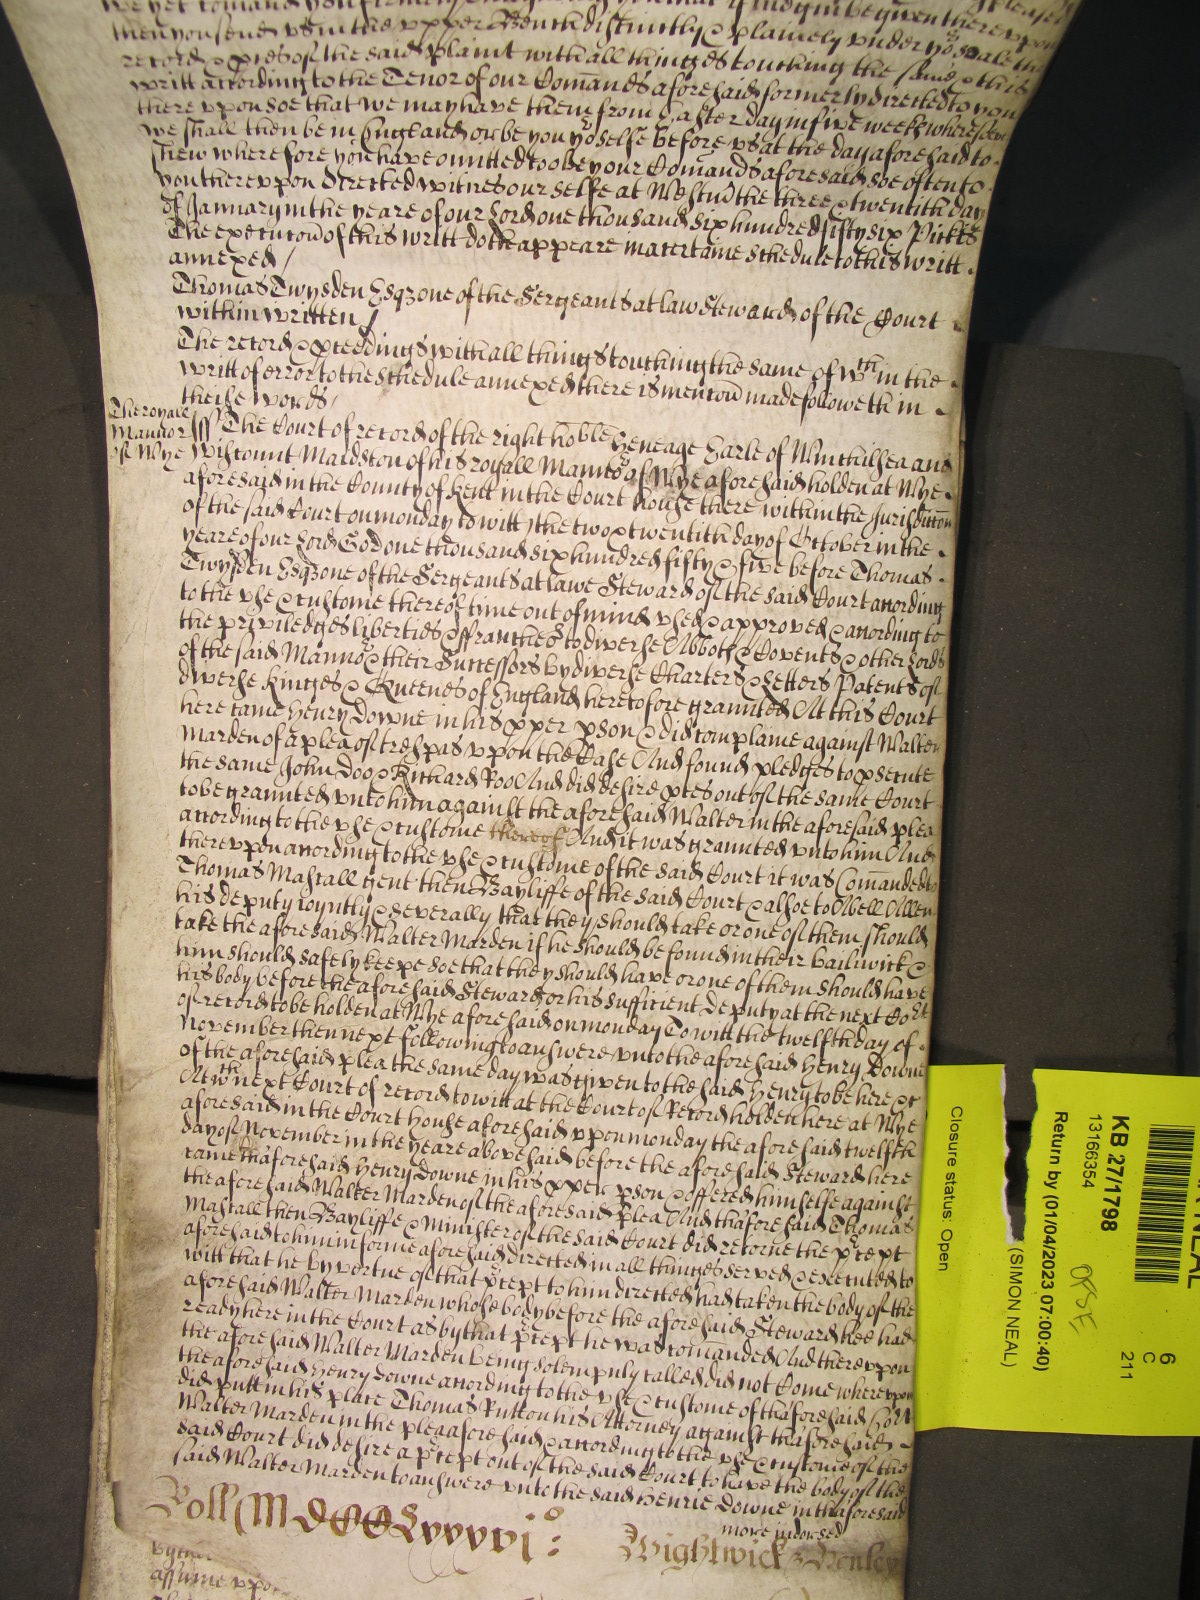 we yet comand you firmely
then you send us in the upper Bench distinctly & plainely under yor seale the
record & pces of the said plaint with all things touching the same & this
writt according to the Tenor of our Comands aforesaid formerly directed to you
thereupon soe that we may have them from Easter day in five weeks wheresoever
we shall then be in England or be you yor selfe before us at the day aforesaid to
shew wherefore you have omitted to obey our Comands aforesaid soe often to
you thereupon directed witnes our selfe at Westm the three & twentith day
of January in the yeare of our Lord one thousand six hundred fifty six Pickes
The execucon of this writt doth appeare in a certaine schedule to this writt
annexed /
Thomas Twysden Esqr one of the Sergeants at law Steward of the Court
within written /
The record & pceedings with all things touching the same of wth in the
writt of error to the schedule annexed there is mencon made followeth in
theise words /
The royall
Mannor
of Wye
ss The Court of record of the right hoble Heneage Earle of Winchilsea and
Viscount Maidston of his royall Mannor of Wye aforesaid holden at Wye
aforesaid in the County of Kent in the Court house there within the Jurisdiccon
of the said Court on monday to witt the two & twentith day of October in the
yeare of our Lord God one thousand six hundred fifty & five before Thomas
Twysden Esqr one of the Sergeants at lawe Steward of the said Court according
to the use & custome thereof time out of mind used & approved & according to
the priviledges liberties & ffranches to diverse Abbots & Covents & other Lords
of the said Mannor & their Successors by diverse Charters & Letters Patents of
diverse Kinges & Queenes of England heretofore graunted At this Court
here came Henry Downe in his pper pson & did complaine against Walter
Marden of a plea of trespas upon the Case And found pledges to psecute
the same John Doo & Richard Roo And did desire pces out of the same Court
to be graunted unto him against the aforesaid Walter in the aforesaid plea
according to the use & custome thereof And it was graunted unto him And
thereupon according to the use & custome of the said Court it was Comanded to
Thomas Mascall gent then Bayliffe of the said Court & alsoe to Abell Allen
his deputy ioyntly & severally that they should take or one of them should
take the aforesaid Walter Marden if he should be found in their bailiwick &
him should safely keepe soe that they should have or one of them should have
his body before the aforesaid Steward or his sufficient deputy at the next Cort
of record to be holden at Wye aforesaid on monday To witt the twelfth day of
November then next following to answere unto the aforesaid Henry Downe
of the aforesaid plea the same day was given to the said Henry to be here &c
At wth next Court of record to witt at the Court of Record holden here at Wye
aforesaid in the Court house aforesaid upon monday the aforesaid twelfth
day of November in the yeare abovesaid before the aforesaid Steward here
came thaforesaid Henry Downe in his pper pson & offered himselfe against
the aforesaid Walter Marden of the aforesaid plea And thaforesaid Thomas
Mascall then Bayliffe & Minister of the said Court did retorne the prcept
aforesaid to him in forme aforesaid directed in all thinges served & executed to
witt that he by vertue of that prcept to him directed had taken the body of the
aforesaid Walter Marden whose body before the aforesaid Steward hee had
ready here in the Court as by that prcept he was comanded And thereupon
the aforesaid Walter Marden being solempnly called did not Come whereupon
the aforesaid Henry Downe according to the use & custome of thaforesaid Cort
did putt in his place Thomas Rutton his Attorney against thaforesaid
Walter Marden in the plea aforesaid & according to the use & custome of the
said Court did desire a prcept out of the said Court to have the body of the
said Walter Marden to answere unto the said Henrie Downe in thaforesaid
more indorsed
Roll MDCCLxxxxvi: Wightwick & Henley
assume upo
KB 27/1798
13166354
Return by (01/04/2023 07:00:40)
(SIMON NEAL)
Closure status: Open
6
C
211